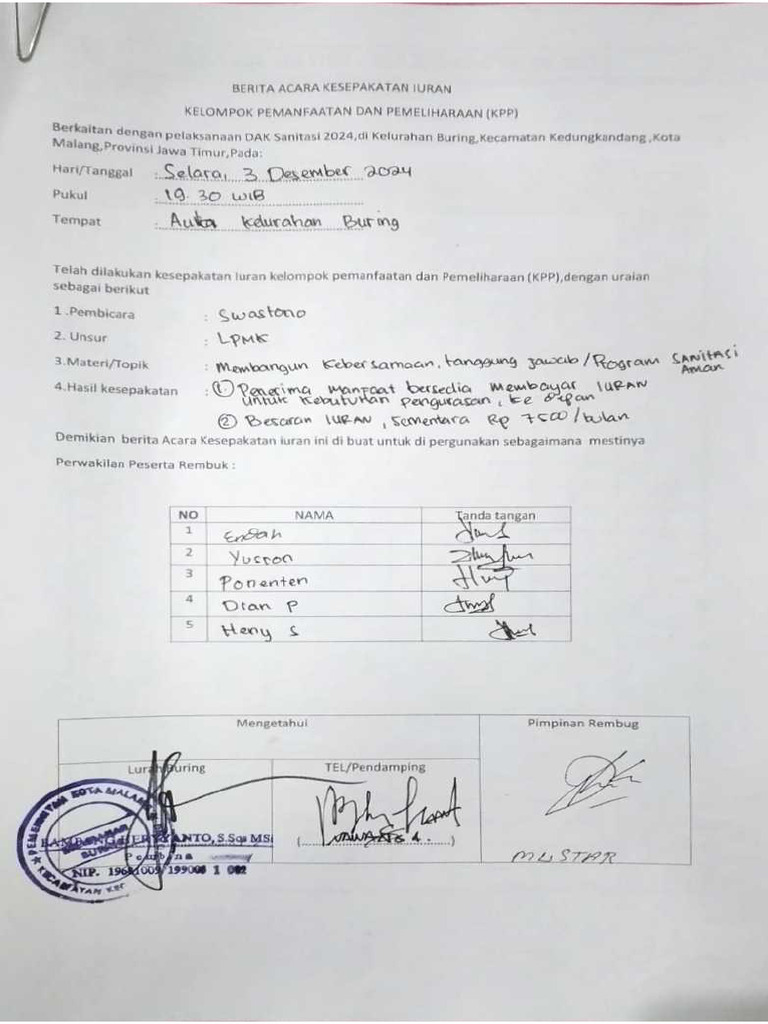 BERITA ACARA KESEPAKATAN IURAN
KELOMPOK PEMANFAATAN DAN PEMELIHARAAN (KPP)
Berkaitan dengan pelaksanaan DAK Sanitasi 2024,di Kelurahan Buring,Kecamatan Kedungkandang ,Kota
Malang,Provinsi Jawa Timur,Pada:
Hari/Tanggal : Selara, 3 Desember 2024
Pukul : 19.30 WIB
Tempat : Aula Kelurahan Buring
Telah dilakukan kesepakatan Iuran kelompok pemanfaatan dan Pemeliharaan (KPP),dengan uraian
sebagai berikut
1 .Pembicara : Swastono
2. Unsur : LPMK
3.Materi/Topik : Membangun Kebersamaan, tanggung jawab/Program SANITASI
Aman
4.Hasil kesepakatan : ① Penerima Manfaat bersedia Membayar IURAN
untuk Kebutuhan Pengurasan, ke depan
② Besaran IURAN, sementara Rp 7500/bulan
Demikian berita Acara Kesepakatan iuran ini di buat untuk di pergunakan sebagaimana mestinya
Perwakilan Peserta Rembuk :
NO NAMA Tanda tangan
1 Endah
2 Yusron
3 Ponenten
4 Dian P
5 Heny S
Mengetahui Pimpinan Rembug
Lurah Buring TEL/Pendamping
PEMERINTAH KOTA MALANG
BAMBANG HERYANTO, S.Sos MSi
Pembina
NIP. 1 002
KECAMATAN KED
MUSTAR